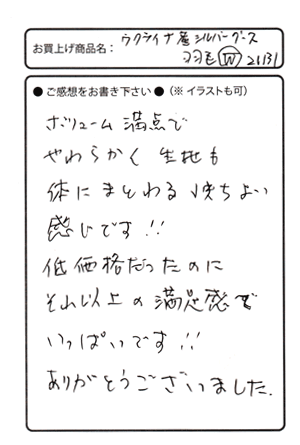 お買上げ商品名： ウクライナ産シルバーグース
羽毛Ⓦ 21131
● ご感想をお書き下さい ●（※ イラストも可）
ボリューム満点で
やわらかく 生地も
体にまとわる 快ちよい
感じです!!
低価格だったのに
それ以上の満足感で
いっぱいです!!
ありがとうございました.